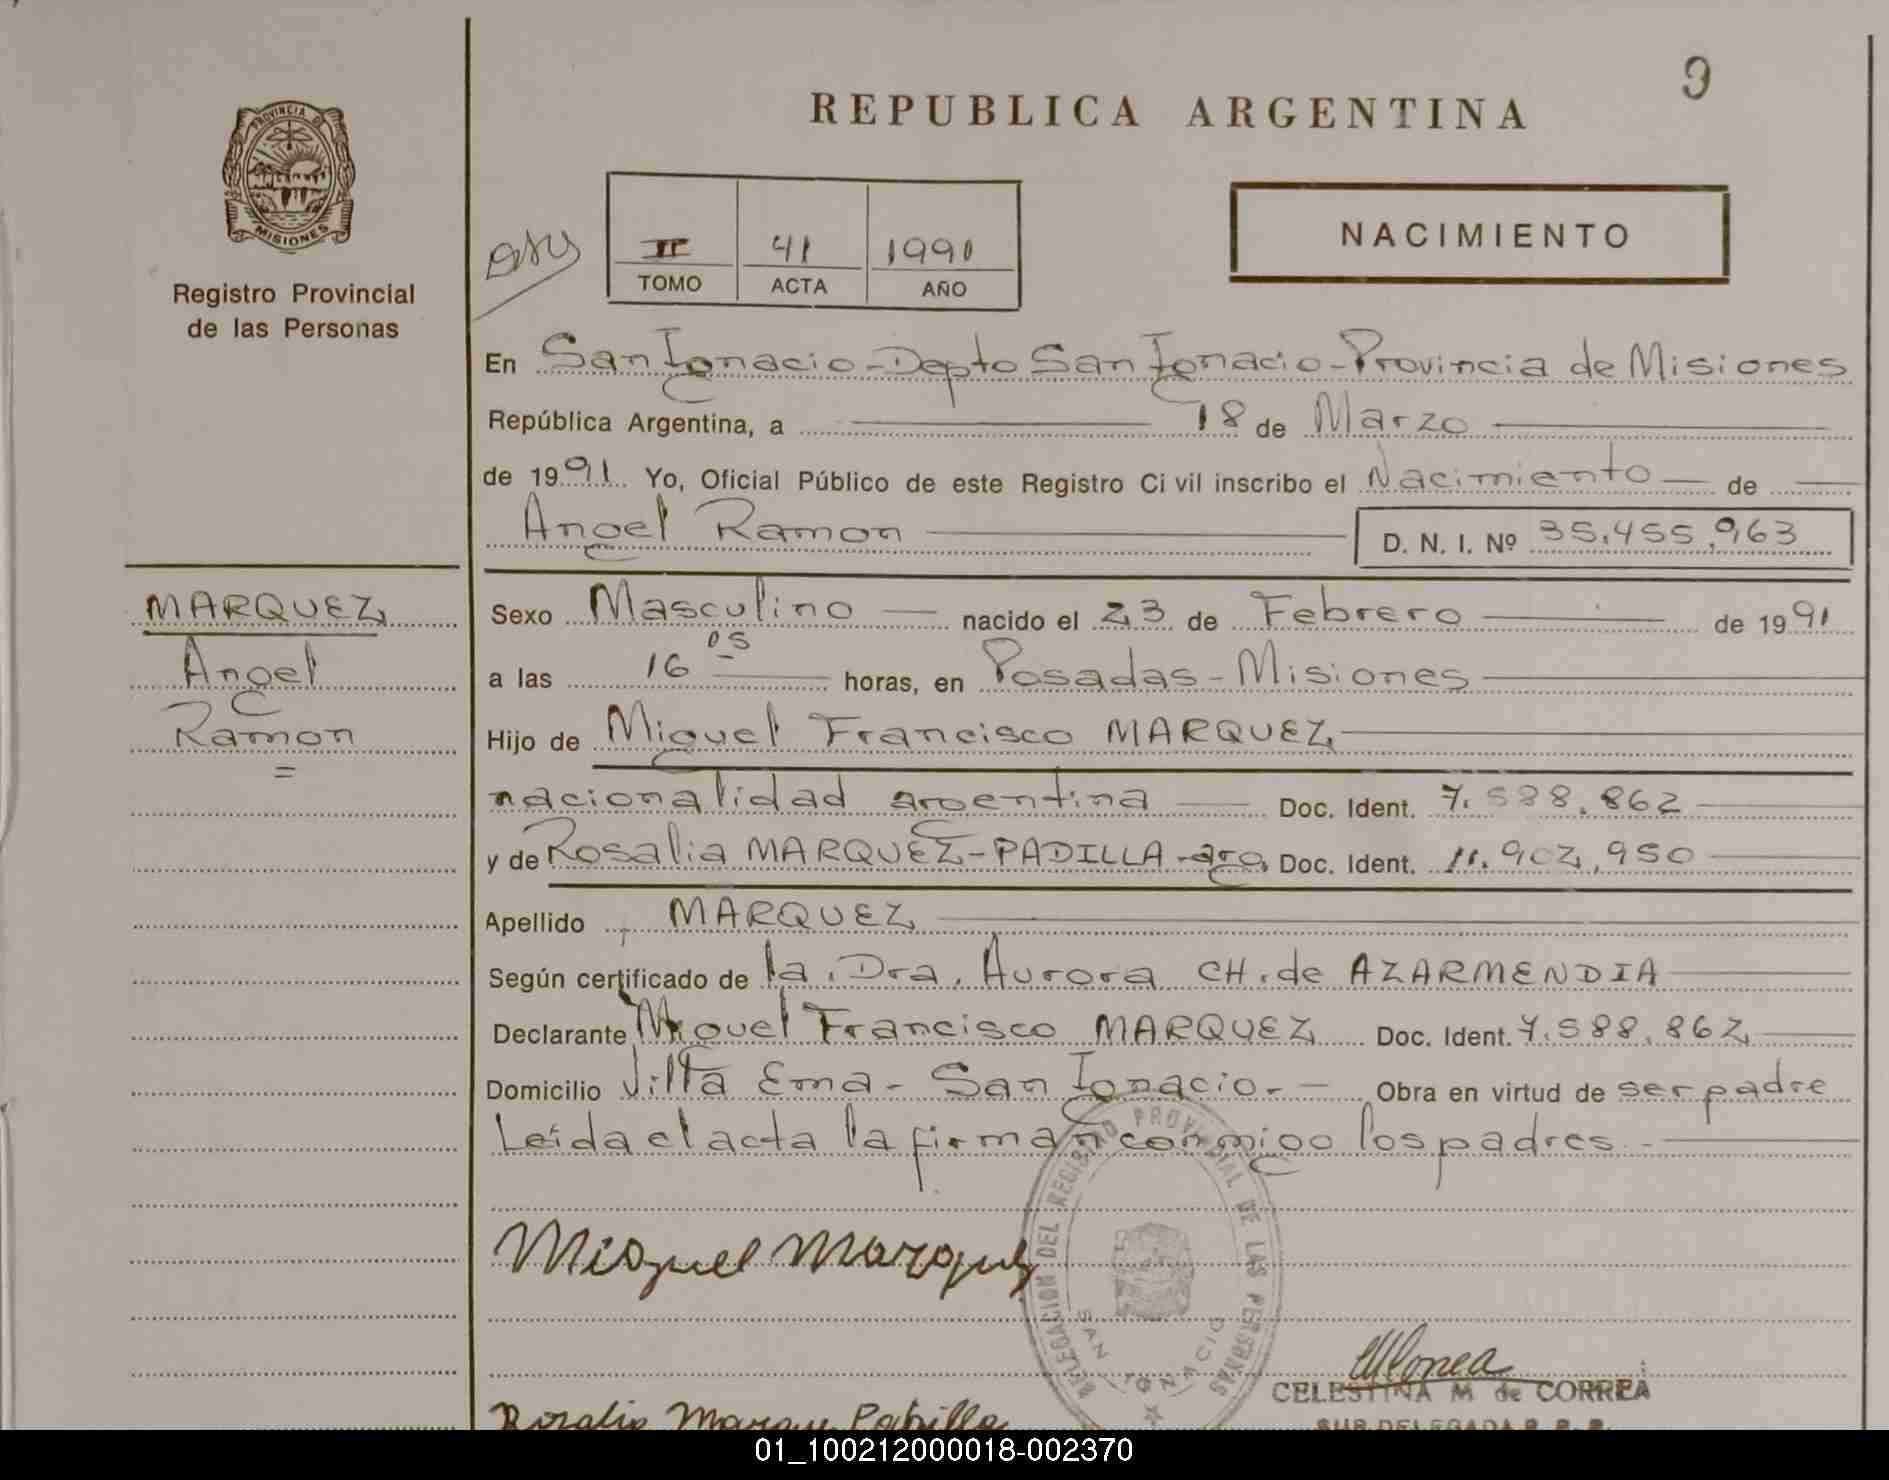 9
REPUBLICA ARGENTINA
PROVINCIA DE
MISIONES
Registro Provincial
de las Personas
II 41 1991
TOMO ACTA AÑO
NACIMIENTO
En San Ignacio - Depto San Ignacio - Provincia de Misiones
República Argentina, a 18 de Marzo
de 1991 Yo, Oficial Público de este Registro Civil inscribo el Nacimiento de
Angel Ramon D. N. I. Nº 35.455.963
MARQUEZ
Angel
Ramon
=
Sexo Masculino nacido el 23 de Febrero de 1991
a las 16 05 horas, en Posadas - Misiones
Hijo de Miguel Francisco MARQUEZ
nacionalidad argentina Doc. Ident. 7.588.862
y de Rosalia MARQUEZ-PADILLA - arg. Doc. Ident. 11.902.950
Apellido MARQUEZ
Según certificado de la. Dra. Aurora CH. de AZARMENDIA
Declarante Miguel Francisco MARQUEZ Doc. Ident. 7.588.862
Domicilio Villa Ema - San Ignacio.- Obra en virtud de ser padre
Leída el acta la firman conmigo los padres.-
DELEGACION DEL REGISTRO PROVINCIAL DE LAS PERSONAS
SAN IGNACIO
Miguel Marquez
CELESTINA M de CORREA
SUB DELEGADA R. P. P.
Rosalia Marquez Padilla
01_100212000018-002370